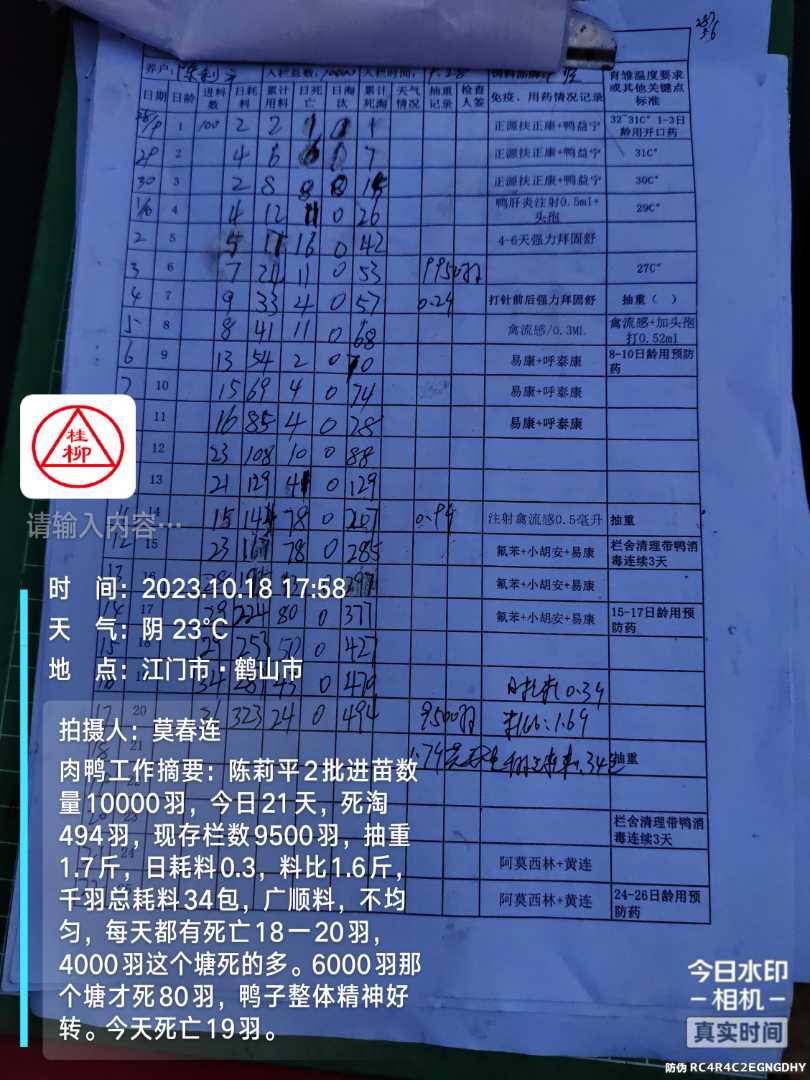 养户: 入栏总数: 10000 入栏时间: 9.28
日期 日龄 进料数 日耗料 累计用料 日死亡 日淘汰 累计死淘 天气情况 抽重记录 检查人签 免疫、用药情况记录 育雏温度要求或其他关键点标准
28/9 1 100 2 2 正源扶正康+鸭益宁 32~31C° 1-3日龄用开口药
29 2 4 6 7 正源扶正康+鸭益宁 31C°
30 3 2 8 8 正源扶正康+鸭益宁 30C°
4 4 12 11 0 26 鸭肝炎注射0.5ml+头孢 29C°
2 5 16 0 42 4-6天强力拜固舒
3 6 7 24 11 0 53 9950羽 27C°
4 7 9 33 4 0 57 0.24 打针前后强力拜固舒 抽重（ ）
5 8 8 41 11 0 68 禽流感/0.3ML 禽流感+加头孢打0.52ml
6 9 13 54 2 0 70 易康+呼泰康 8-10日龄用预防药
7 10 15 69 4 0 74 易康+呼泰康
11 16 85 4 0 78 易康+呼泰康
12 23 108 10 0 88
13 21 129 41 0 129
14 15 144 78 0 207 0.94 注射禽流感0.5毫升 抽重
12 15 23 167 78 0 285 栏舍清理带鸭消毒连续3天
氟苯+小胡安+易康
16 氟苯+小胡安+易康
14 17 29 224 80 0 377 氟苯+小胡安+易康 15-17日龄用预防药
15 18 29 253 50 0 427
34 0 470 0.34
17 20 323 24 0 494 9500羽 1.69
18 21 抽重
栏舍清理带鸭消毒连续3天
阿莫西林+黄连
阿莫西林+黄连 24-26日龄用预防药
桂柳
请输入内容…
时 间：2023.10.18 17:58
天 气：阴 23℃
地 点：江门市·鹤山市
拍摄人：莫春连
肉鸭工作摘要：陈莉平2批进苗数
量10000羽，今日21天，死淘
494羽，现存栏数9500羽，抽重
1.7斤，日耗料0.3，料比1.6斤，
千羽总耗料34包，广顺料，不均
匀，每天都有死亡18一20羽，
4000羽这个塘死的多。6000羽那
个塘才死80羽，鸭子整体精神好
转。今天死亡19羽。
今日水印
-相机-
真实时间
防伪 RC4R4C2EGNGDHY